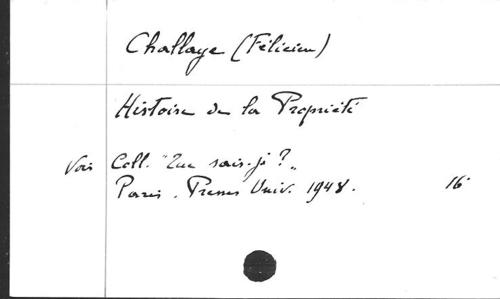 Challaye (Félicien)
Histoire de la Propriété
Voir Coll. "Que sais-je ?"
Paris. Presses Univ. 1948. 16°